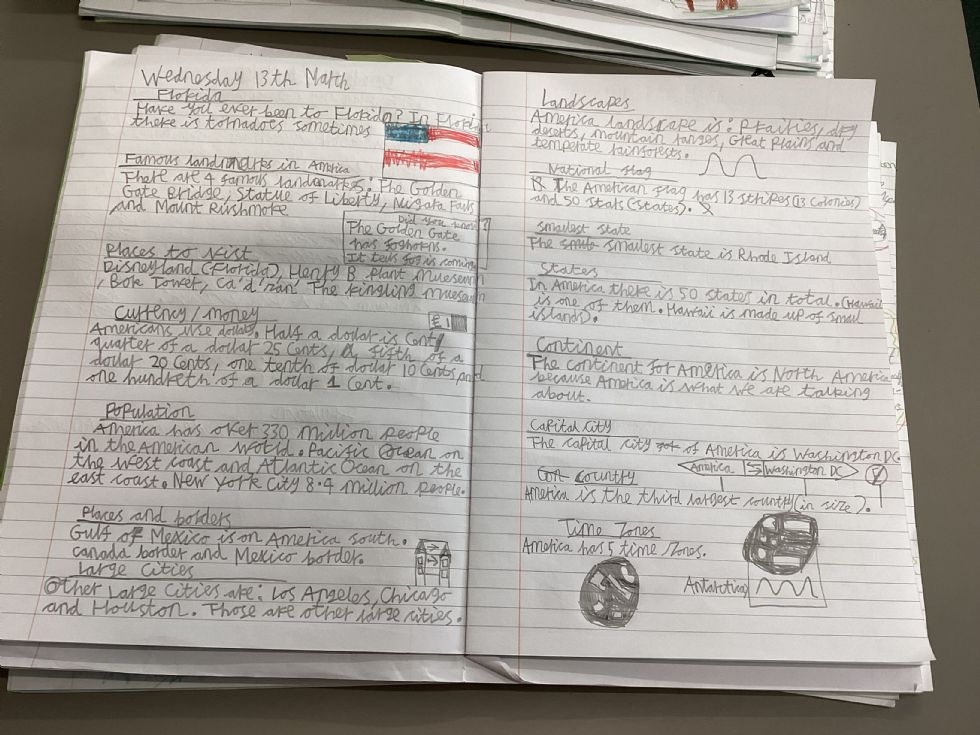 Wednesday 13th March
Florida
Have you ever been to Florida? In Florida
there is tornadoes sometimes
Famous landmarks in America
There are 4 famous landmarks: The Golden
Gate Bridge, Statue of Liberty, Niagara Falls
and Mount Rushmore
Did you know?
The Golden Gate
has foghorns.
It tells fog is coming
Places to visit
Disneyland (Florida), Henry B Plant Mueseum
, Bok Tower, Ca'd'zan, The Ringling museum
Currency/money
£1
Americans use dollar. Half a dollar is Cent,
quarter of a dollar 25 Cents, fifth of a
dollar 20 Cents, one tenth of dollar 10 Cents, and
one hundreth of a dollar 1 Cent.
Population
America has over 330 million people
in the American world. Pacific Ocean on
the west coast and Atlantic Ocean on the
east coast. New York City 8.4 million people.
Places and borders
Gulf of Mexico is on America south.
Canada border and Mexico border.
Large Cities
Other Large Cities are: Los Angeles, Chicago
and Houston. Those are other large cities.
Landscapes
America landscape is: Prairies, dry
deserts, mountain ranges, Great Plains and
temperate rainforests.
National flag
The American flag has 13 stripes (13 Colonies)
and 50 stars (states).
smallest state
The smallest state is Rhode Island
States
In America there is 50 states in total. (Hawaii
is one of them. Hawaii is made up of small
islands).
Continent
The continent for America is North America
because America is what we are talking
about.
Capital City
The capital city of America is Washington DC.
America Washington DC
Country
America is the third largest country (in size).
Time Zones
America has 5 time zones.
Antarctica